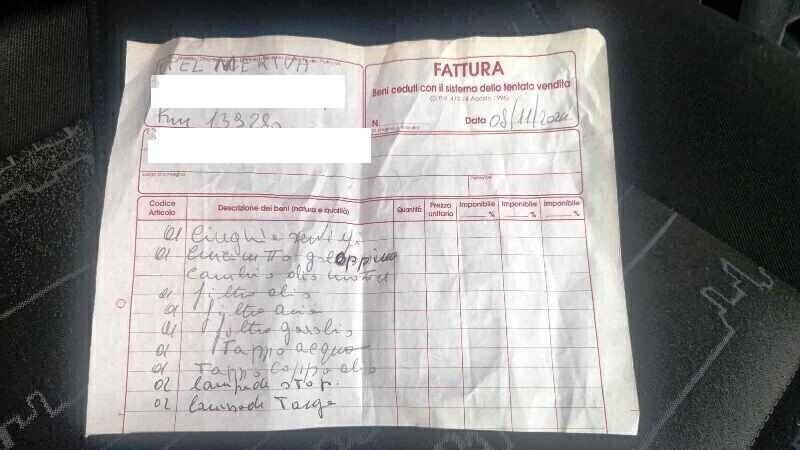 OPEL MERIVA
Km 13928
FATTURA
Beni ceduti con il sistema della tentata vendita
N. Data 08/11/2024
Codice Articolo Descrizione dei beni (natura e qualità) Quantità Prezzo unitario Imponibile % Imponibile % Imponibile %
01 Cinghia servizi
01
Cambio olio motore
01 filtro olio
01 filtro aria
01 filtro gasolio
01 Tappo acqua
01 Tappo coppa olio
02 lampade stop.
02 lampade Targa